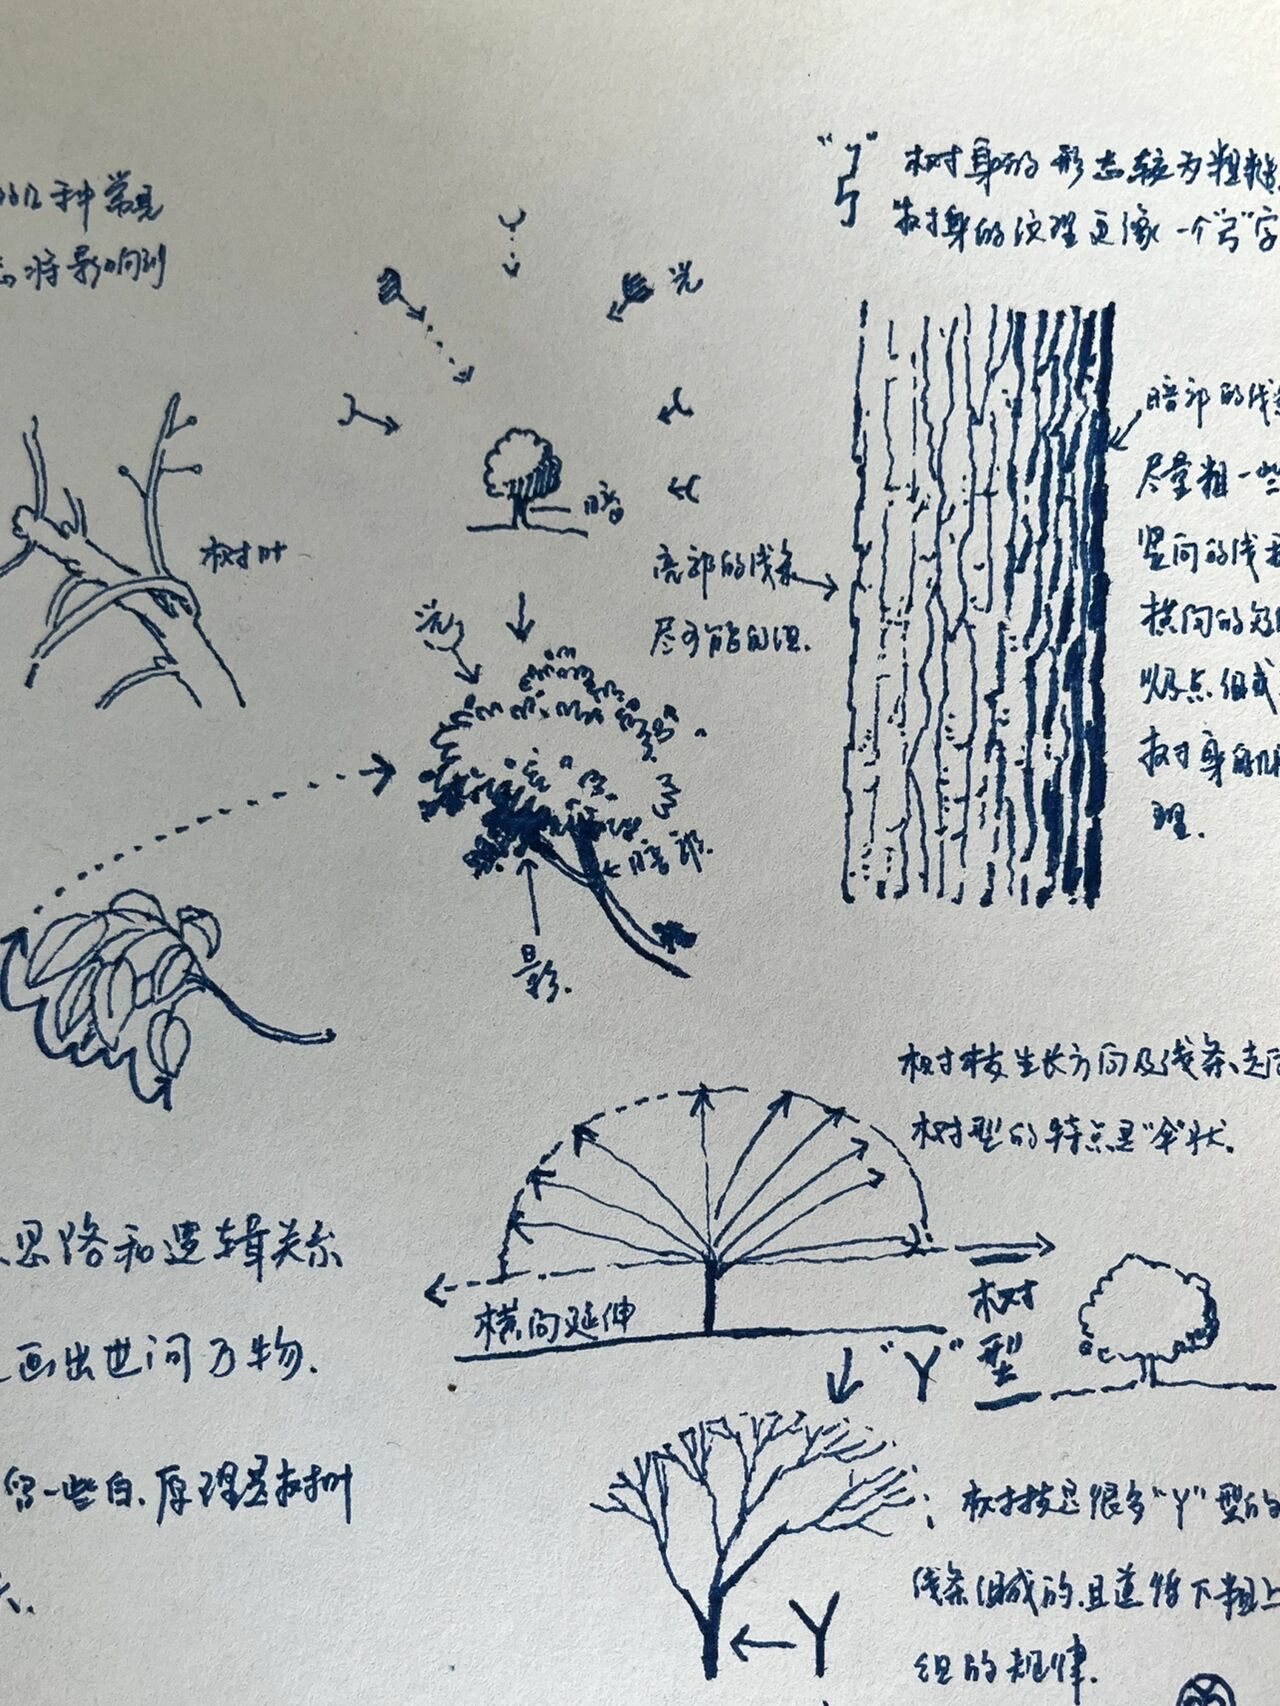 的几种常见
将影响到
"弓" 树身的形态较为粗糙
树身的纹理更像一个"弓"字
光
暗
树叶
亮部的线条
尽可能的细.
光
暗部的线条
尽量粗一些
竖向的线条
横向的短
以及点组成
树身的肌
理.
暗部.
影.
树枝生长方向及线条走向
树型的特点是"伞"状.
思路和逻辑关系
画出世间万物.
留一些白.原理是树叶
横向延伸
树
型
"Y"
树枝是很多"Y"型的
线条组成的.且遵循下粗上
细的规律.
Y